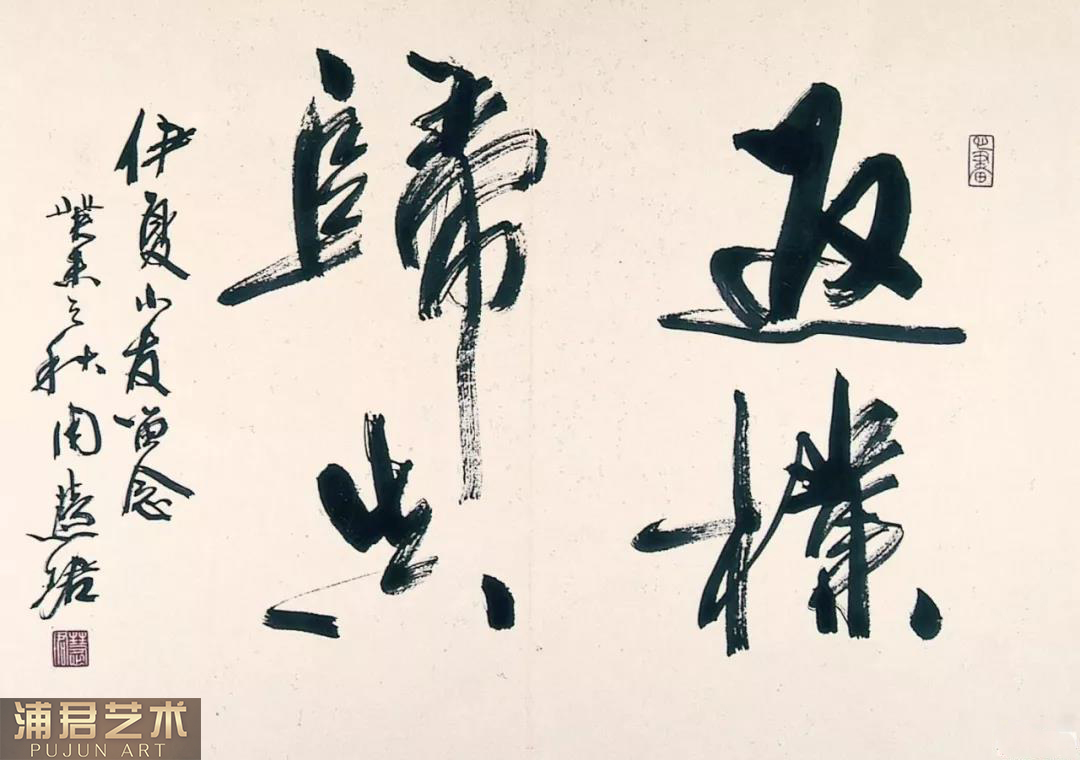 返樸
歸真
伊夏小友留念
癸未之秋周慧珺
浦君艺术
PUJUN ART